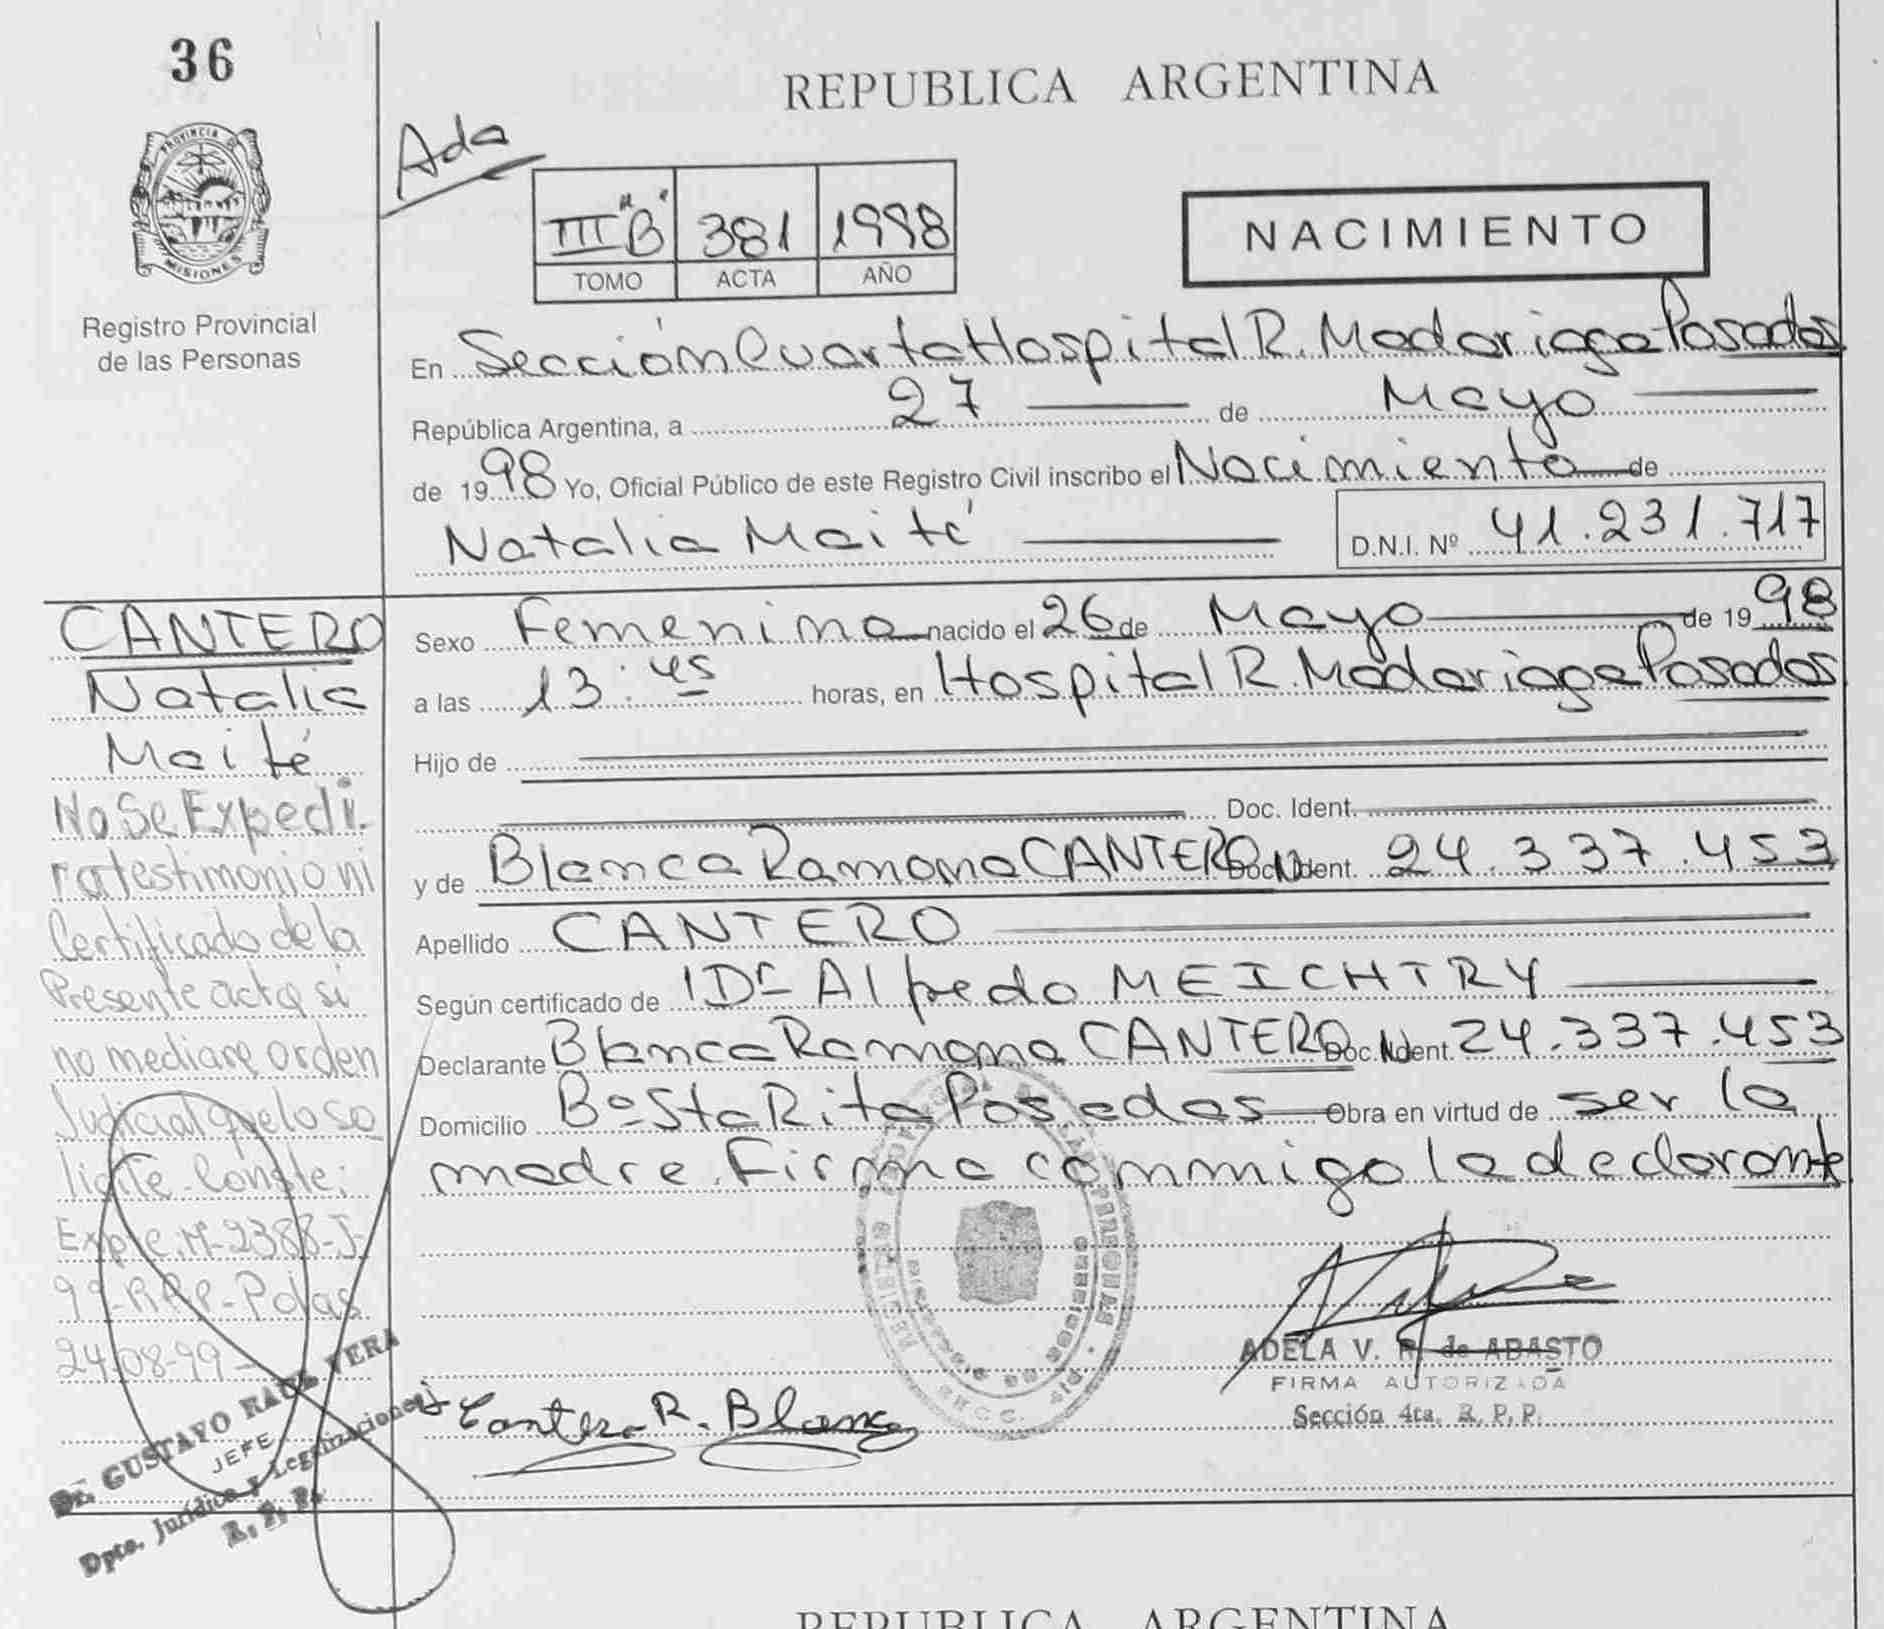 36
REPUBLICA ARGENTINA
Ada
PROVINCIA DE
MISIONES
Registro Provincial
de las Personas
III "B" 381 1998
TOMO ACTA AÑO
NACIMIENTO
En Sección Cuarta Hospital R. Madariaga Posadas
República Argentina, a 27 de Mayo
de 1998 Yo, Oficial Público de este Registro Civil inscribo el Nacimiento de
Natalia Maité D.N.I. Nº 41.231.717
CANTERO
Natalia
Maité
No Se Expedi-
ra testimonio ni
Certificado de la
Presente acta si
no mediare orden
Judicial que lo so
licite. Conste:
Expte. M-2388-J-
99-RPP-Pdas
24-08-99-
Dr. GUSTAVO RAUL VERA
JEFE
Dpto. Jurídico y Legalizaciones
R. P. P.
Sexo Femenino nacido el 26 de Mayo de 1998
a las 13:45 horas, en Hospital R. Madariaga Posadas
Hijo de
Doc. Ident.
y de Blanca Ramona CANTERO Doc. Ident. 24.337.453
Apellido CANTERO
Según certificado de Dr Alfredo MEICHTRY
Declarante Blanca Ramona CANTERO Doc. Ident. 24.337.453
Domicilio Bº Sta Rita Posadas Obra en virtud de ser la
madre. Firma conmigo la declarante
ADELA V. R. de ABASTO
FIRMA AUTORIZADA
Sección 4ta. R. P. P.
Cantero R. Blanca
REPUBLICA ARGENTINA